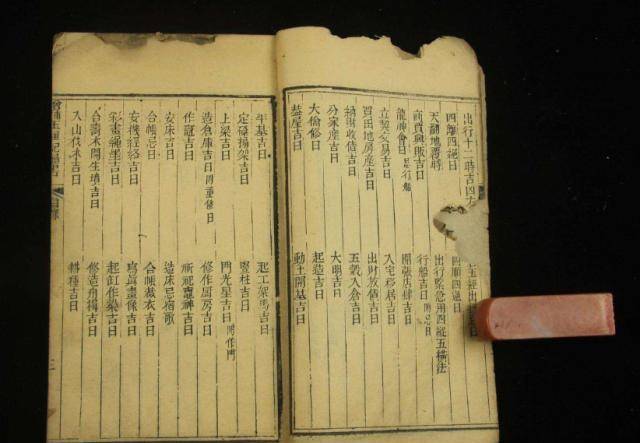 出行十二時吉四方
四離四絕日
天翻地覆時
商賈興販吉日
龍神會日忌行船
立契交易吉日
買田地房產吉日
納財收債吉日
分家產吉日
大偷修日
蓋屋吉日
出行吉日
四順四逆日
出行緊急用四縱五橫法
行船吉日附忌日
開張店肆吉日
入宅移居吉日
出財放債吉日
五穀入倉吉日
大明吉日
起造吉日
動土開基吉日
平基吉日
定磉搧架吉日
上梁吉日
造倉庫吉日附重修日
作竈吉日
安床吉日
合帳忌日
安機經絡吉日
彩畫繩墨吉日
合壽木開生墳吉日
入山伐木吉日
起工架馬吉日
豎柱吉日
門光星吉日附作門
修作厨房吉日
祈祀竈神吉日
造床忌宿歌
合帳裁衣吉日
寫真畫像吉日
起缸作染吉日
修造舟楫吉日
耕種吉日
目錄
二